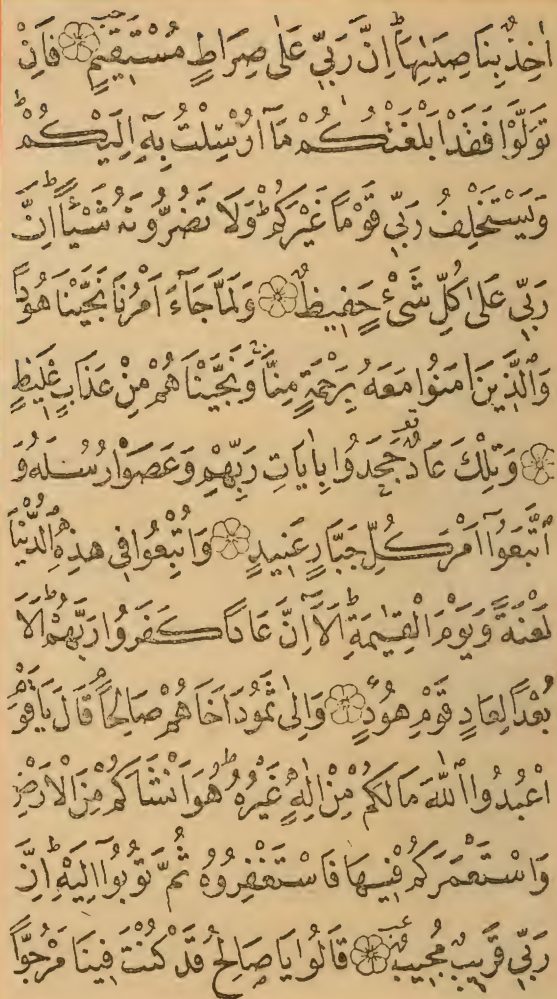 اٰخِذٌ بِنَاصِيَتِهَا ؕ اِنَّ رَبّٖي عَلٰى صِرَاطٍ مُسْتَقٖيمٍ ۞ فَاِنْ
تَوَلَّوْا فَقَدْ اَبْلَغْتُكُمْ مَٓا اُرْسِلْتُ بِهٖٓ اِلَيْكُمْ ؕ
وَيَسْتَخْلِفُ رَبّٖي قَوْمًا غَيْرَكُمْ ۚ وَلَا تَضُرُّونَهُ شَيْـًٔا ؕ اِنَّ
رَبّٖي عَلٰى كُلِّ شَيْءٍ حَفٖيظٌ ۞ وَلَمَّا جَٓاءَ اَمْرُنَا نَجَّيْنَا هُودًا
وَالَّذٖينَ اٰمَنُوا مَعَهُ بِرَحْمَةٍ مِنَّا ۚ وَنَجَّيْنَاهُمْ مِنْ عَذَابٍ غَلٖيظٍ
۞ وَتِلْكَ عَادٌ جَحَدُوا بِاٰيَاتِ رَبِّهِمْ وَعَصَوْا رُسُلَهُ وَ
اتَّبَعُٓوا اَمْرَ كُلِّ جَبَّارٍ عَنٖيدٍ ۞ وَاُتْبِعُوا فٖي هٰذِهِ الدُّنْيَا
لَعْنَةً وَيَوْمَ الْقِيٰمَةِ ؕ اَلَٓا اِنَّ عَادًا كَفَرُوا رَبَّهُمْ ؕ اَلَا
بُعْدًا لِعَادٍ قَوْمِ هُودٍ ۞ وَاِلٰى ثَمُودَ اَخَاهُمْ صَالِحًا ۘ قَالَ يَا قَوْمِ
اعْبُدُوا اللّٰهَ مَا لَكُمْ مِنْ اِلٰهٍ غَيْرُهُ ؕ هُوَ اَنْشَاَكُمْ مِنَ الْاَرْضِ
وَاسْتَعْمَرَكُمْ فٖيهَا فَاسْتَغْفِرُوهُ ثُمَّ تُوبُٓوا اِلَيْهِ ؕ اِنَّ
رَبّٖي قَرٖيبٌ مُجٖيبٌ ۞ قَالُوا يَا صَالِحُ قَدْ كُنْتَ فٖينَا مَرْجُوًّا